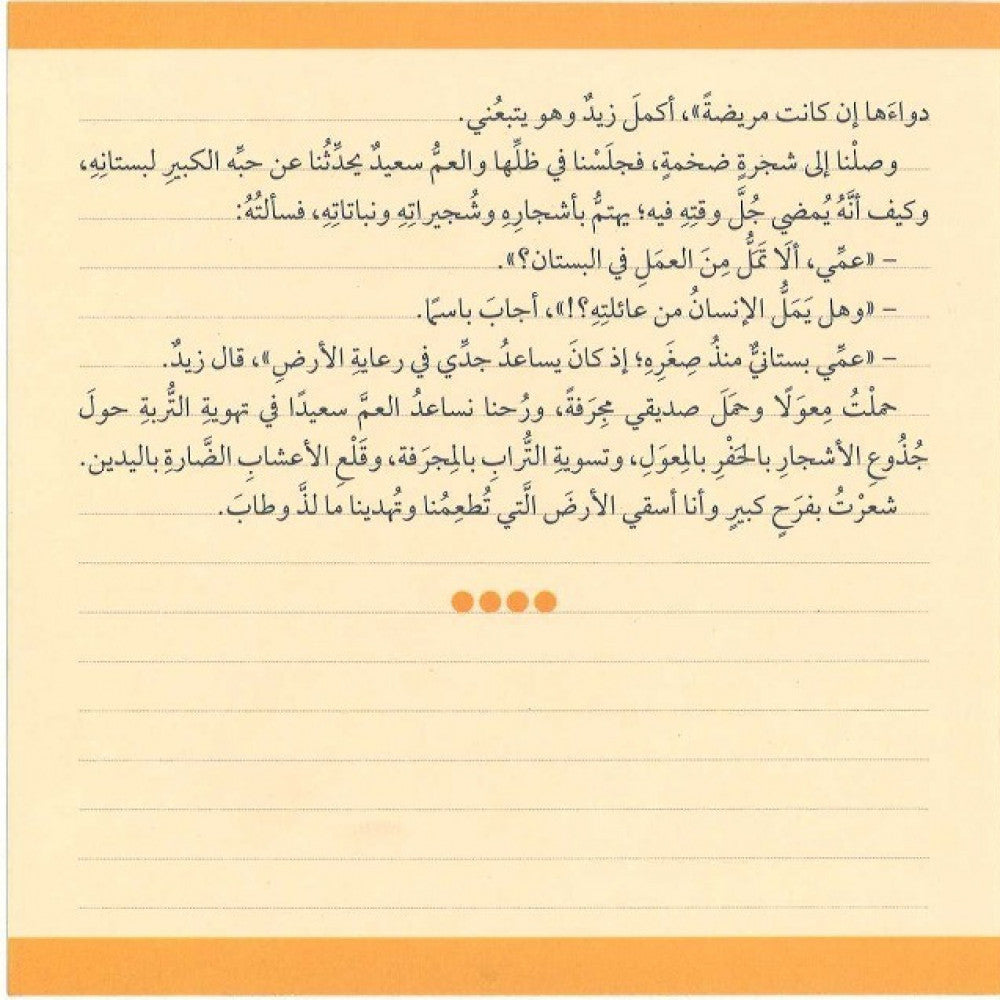 دواءَها إن كانت مريضةً»، أكملَ زيدٌ وهو يتبعُني.
وصلْنا إلى شجرةٍ ضخمةٍ، فجلَسْنا في ظلِّها والعمُّ سعيدٌ يحدِّثُنا عن حبِّه الكبيرِ لبستانِهِ،
وكيف أنَّهُ يُمضي جُلَّ وقتِهِ فيه؛ يهتمُّ بأشجارِهِ وشُجيراتِهِ ونباتاتِهِ، فسألتُهُ:
– «عمِّي، ألَا تَمَلُّ مِنَ العمَلِ في البستان؟».
– «وهل يَمَلُّ الإنسانُ من عائلتِهِ؟!»، أجابَ باسمًا.
– «عمِّي بستانيٌّ منذُ صِغَرِهِ؛ إذ كانَ يساعدُ جدِّي في رعايةِ الأرضِ»، قال زيدٌ.
حملْتُ مِعوَلًا وحمَلَ صديقي مِجرَفةً، ورُحنا نساعدُ العمَّ سعيدًا في تهويةِ التُّربةِ حولَ
جُذُوعِ الأشجارِ بالحَفْرِ بالمِعوَلِ، وتسويةِ التُّرابِ بالمِجرَفة، وقَلْعِ الأعشابِ الضَّارةِ باليدين.
شعرْتُ بفرَحٍ كبيرٍ وأنا أسقي الأرضَ الَّتي تُطعِمُنا وتُهدينا ما لذَّ وطابَ.